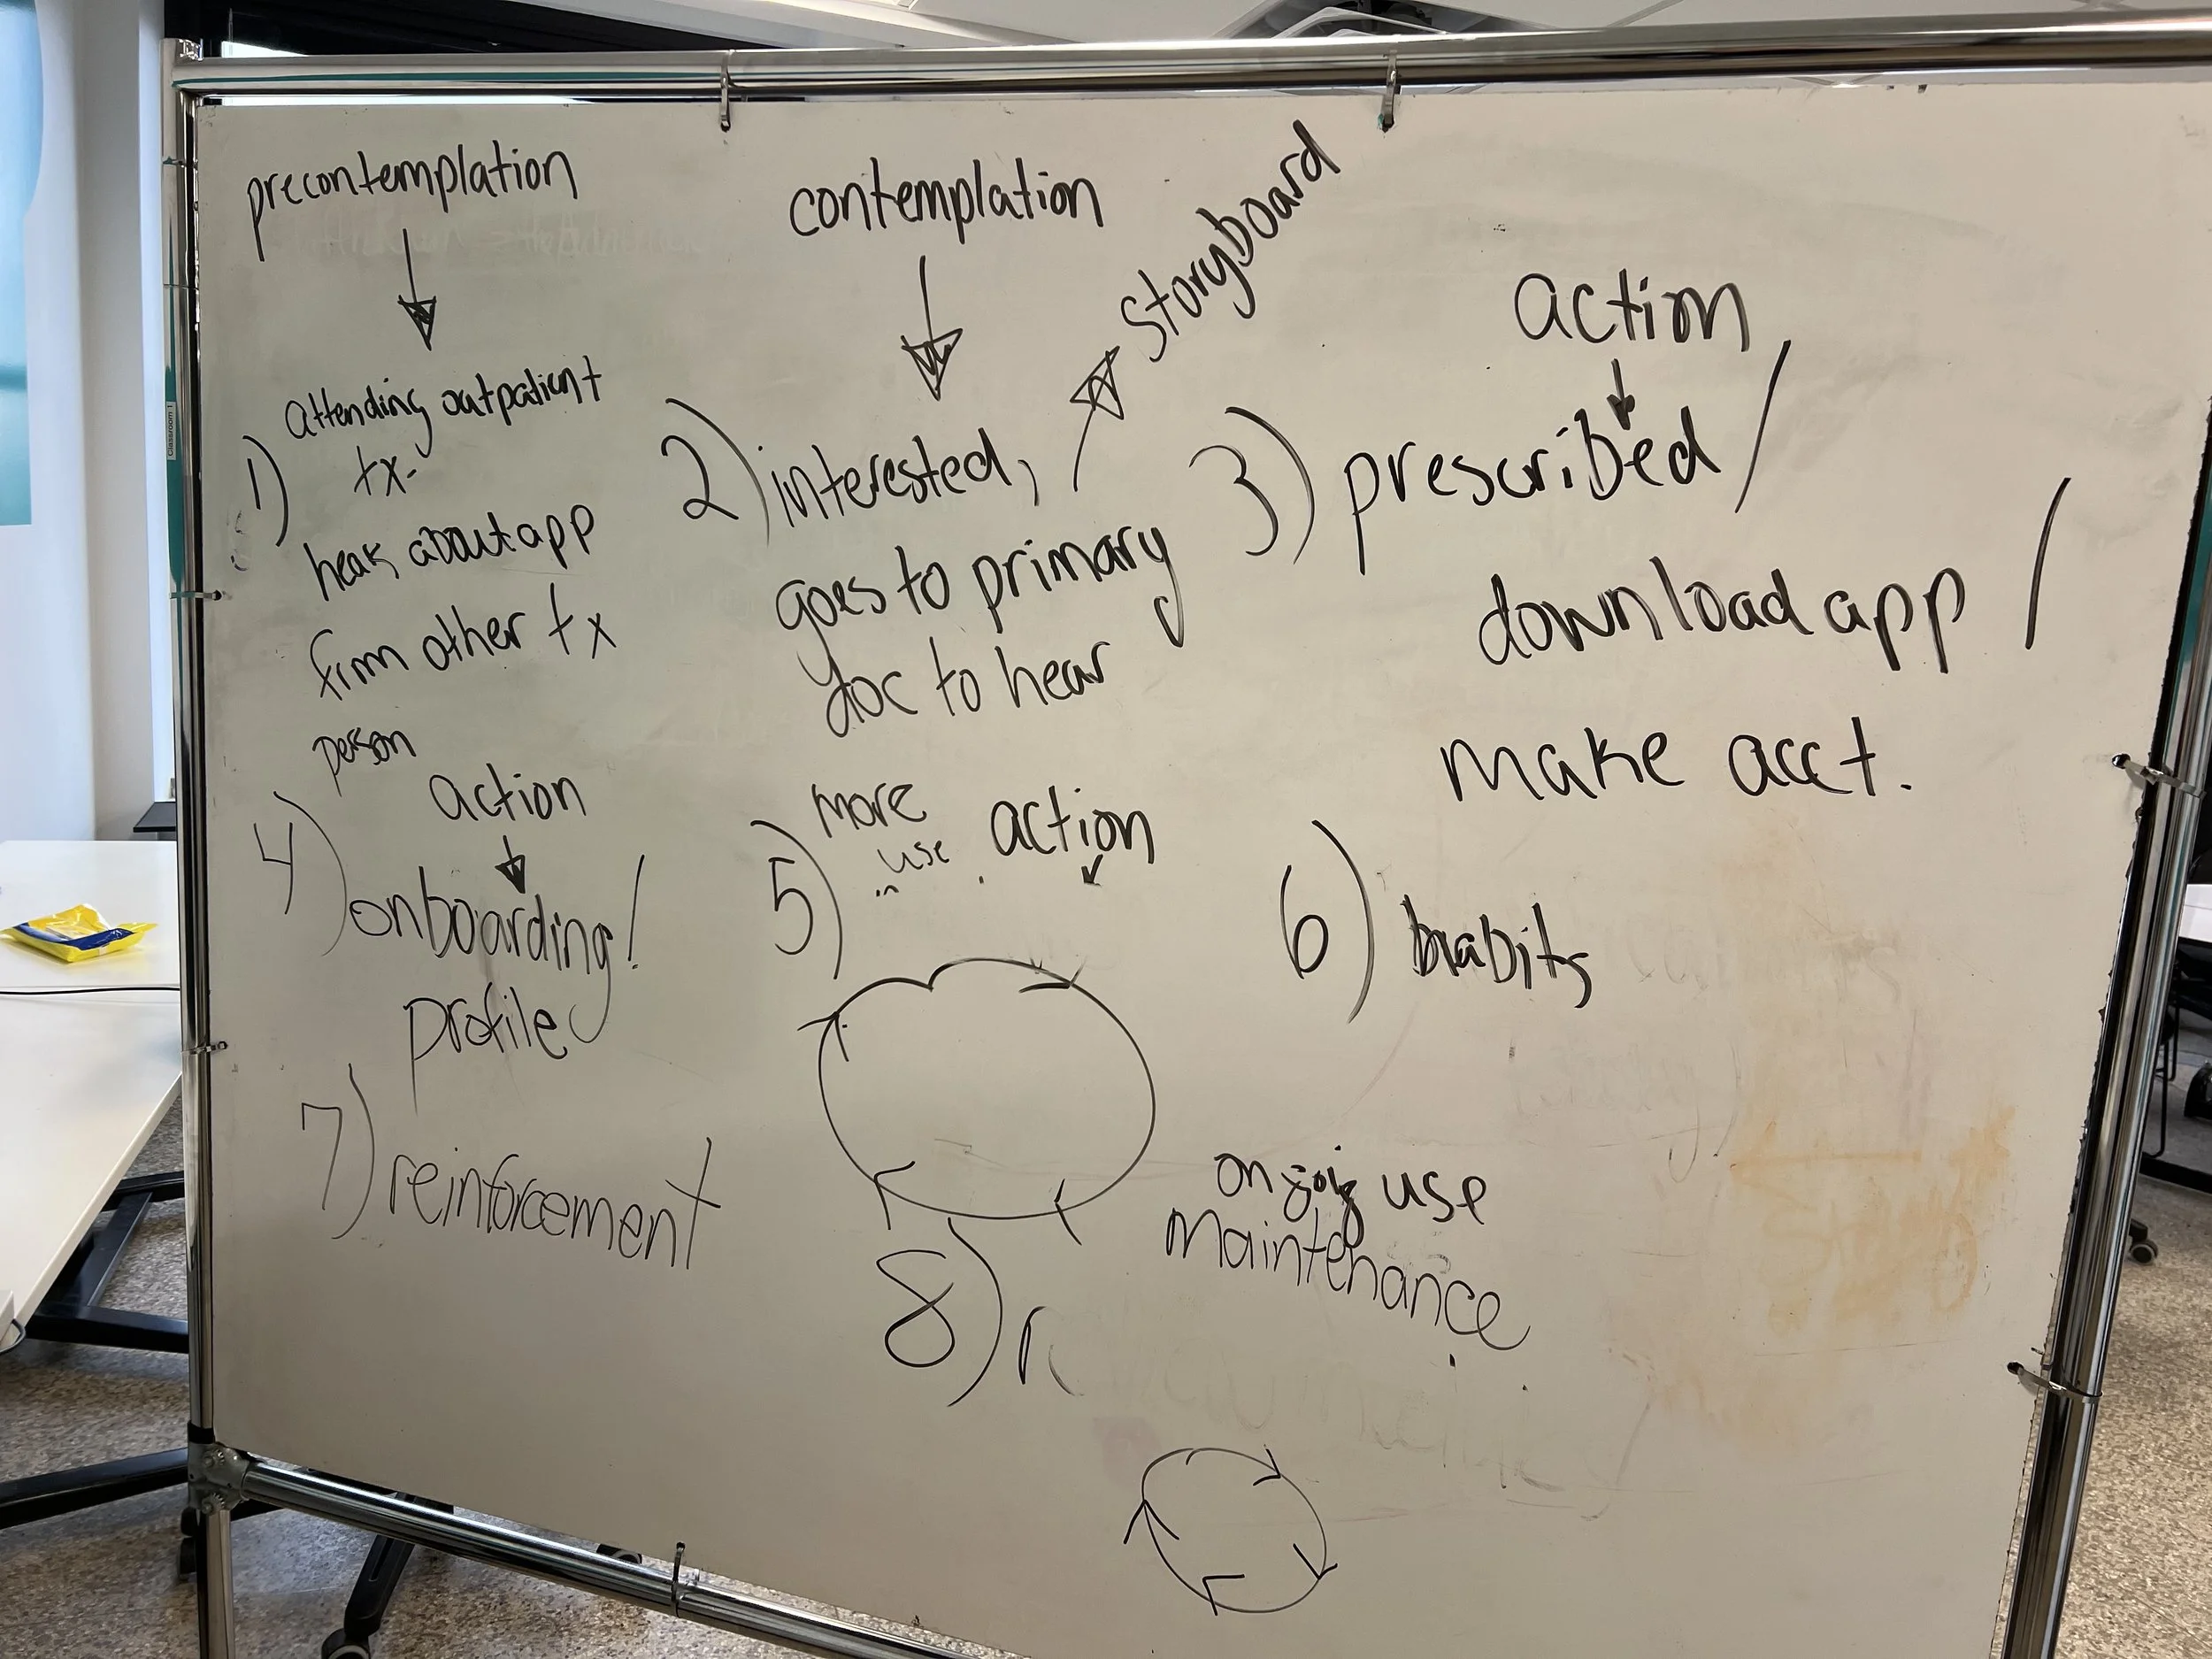 precontemplation
attending outpatient
1) tx-
hears about app
from other tx
person
contemplation
storyboard
2) interested,
goes to primary
doc to hear
action
3) prescribed /
download app /
make acct.
action
4) onboarding!
profile
more
use action
5)
6) habits
7) reinforcement
ongoing use
maintenance
8) r
Classroom 1